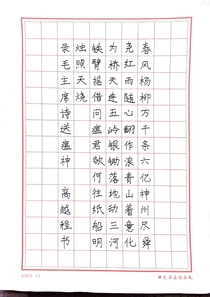 春风杨柳万千条六亿神州尽舜
尧红雨随心翻作浪青山着意化
为桥天连五岭银锄落地动三河
铁臂摇借问瘟君欲何往纸船明
烛照天烧
录毛主席诗送瘟神 高越程书